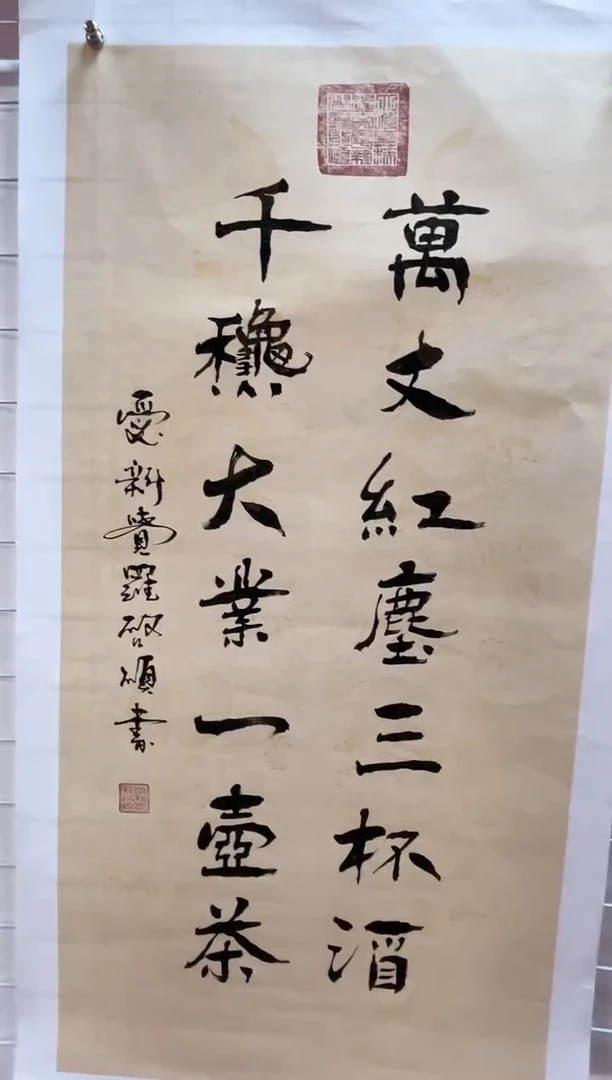 萬丈紅塵三杯酒
千龝大業一壺茶
愛新覺羅啟碩書